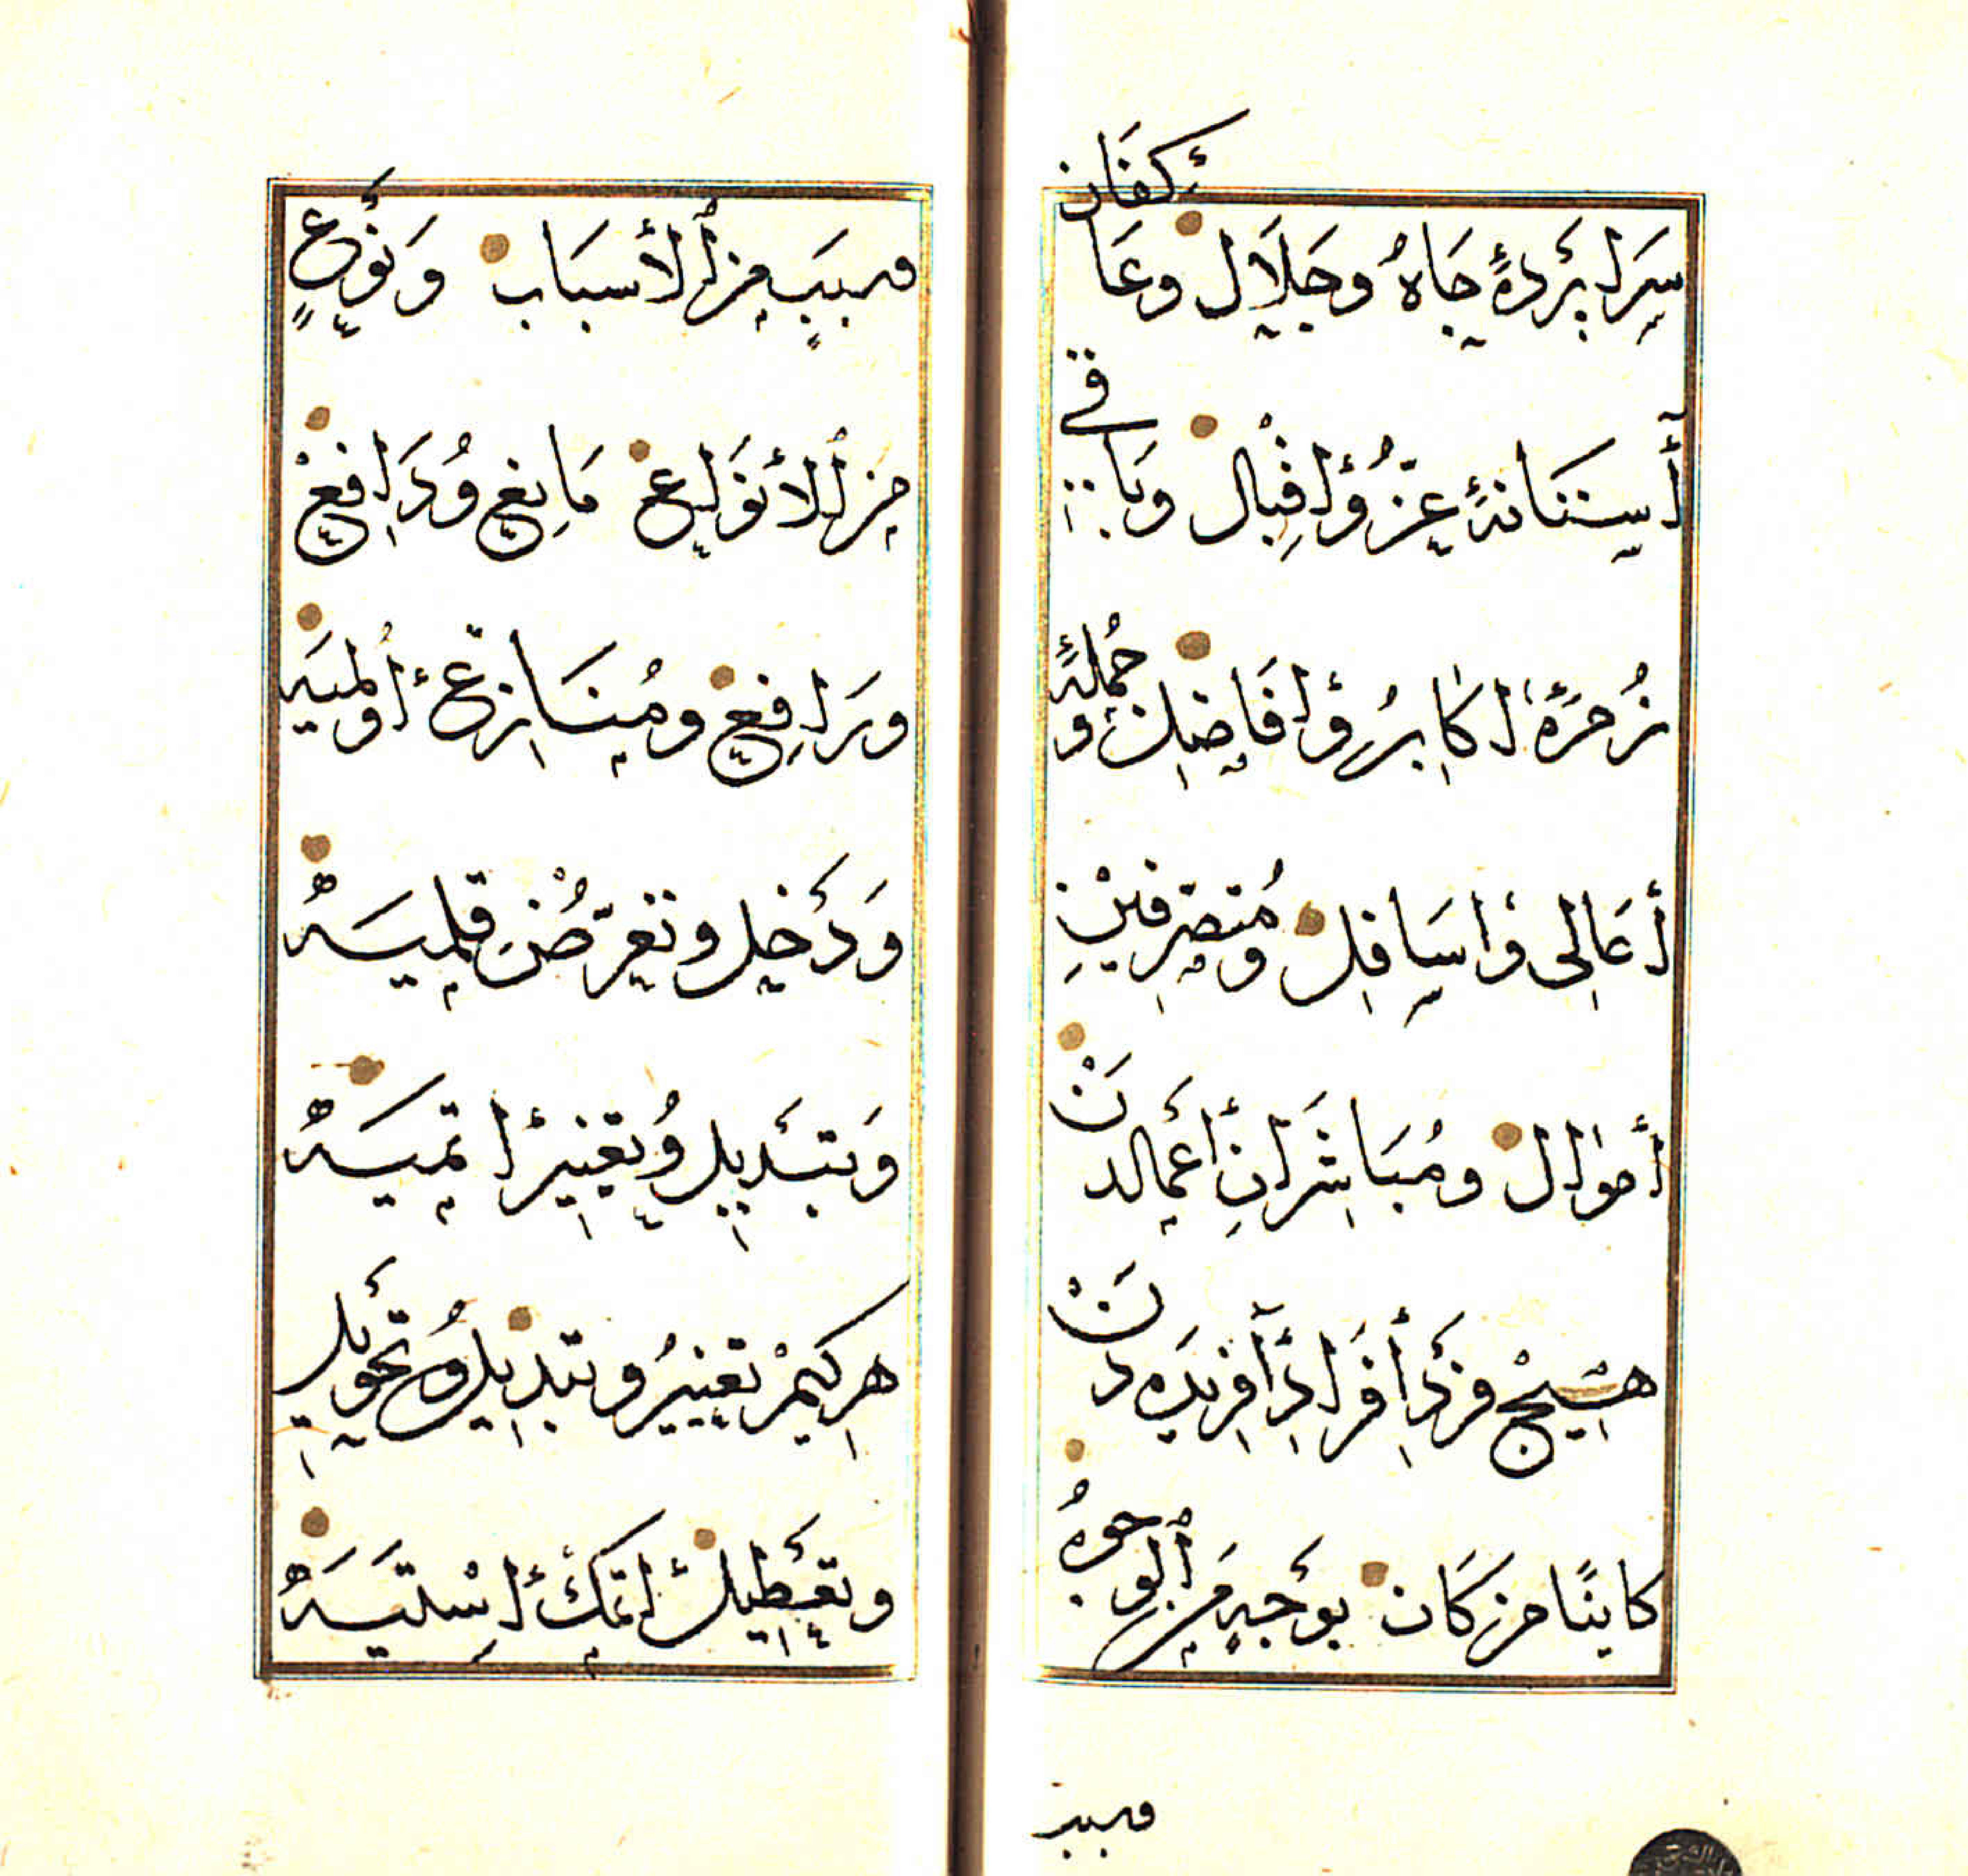 سَرَاپَرْدَهٔ جَاهُ وجَلَالْ وعَاكفَانِ
أسِتَانَهٔ عِزُّ وُاقِبْالْ وبَاقي
زُمرَهٔ اكَابِرُ وْافَاضِلْ وجُملَهٔ
أعَالِى وْاسَافِلْ ومُتصَرّفينِ
أموَالْ ومُبَاشرَانِ أعْمالدَنْ
هيچْ فرْدْ أفرَادْ آفريدَه دَنْ
كاينًا مَن كَانَ بوَجْهٍ مِنَ ٱلوجوهُ
وسببٍ مِنَ ٱلأسبَاب وَنَوْعٍ
مِنَ ٱلأنوَاعْ مَانِعْ وُدَافِعْ
ورَافِعْ ومُنَازعْ اولميَه
وَدَخِل وتعرّضْ قلميَه
وَتبْديل وُتغيير ايتميَه
هركيمْ تغيير وتبديل وُتحْويل
وتعْطيلْ ايتمكْ اسْتيَه
وسبب